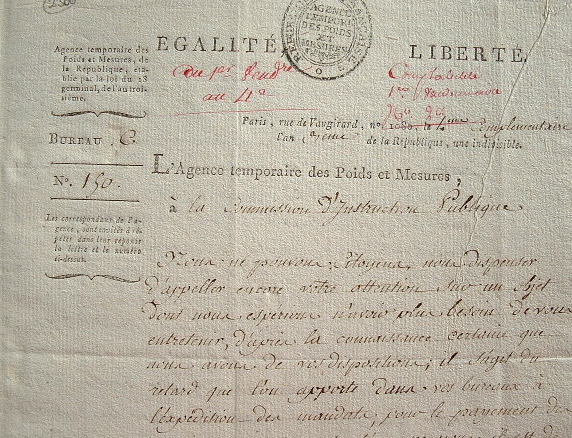 AGENCE
TEMPORAIRE
DES POIDS
ET
MESURES
EGALITÉ,
LIBERTÉ,
Agence temporaire des
Poids et Mesures, de
la République, éta-
blie par la loi du 18
germinal, de l'an troi-
sième.
Du 1er Vendre
au 4e
Comptabilité
1ere
Paris, rue de Vaugirard, no. 1080. le 4eme Complémentaire
l'an 3eme de la République, une indivisible.
BUREAU C.
No. 150.
Les correspondans de l'a-
gence, sont invités à ré-
péter dans leur réponse
la lettre et le numéro
ci-dessus.
L'Agence temporaire des Poids et Mesures,
à la Commission D'Instruction Publique.
Nous ne pouvons, Citoyens, nous dispenser
d'appeller encore votre attention sur un Sujet
dont nous espérions n'avoir plus besoin de vous
entretenir, d'après la connaissance certaine que
nous avons de vos dispositions; il s'agit du
retard que l'on apporte dans vos bureaux à
l'expédition des mandats, pour le payement des